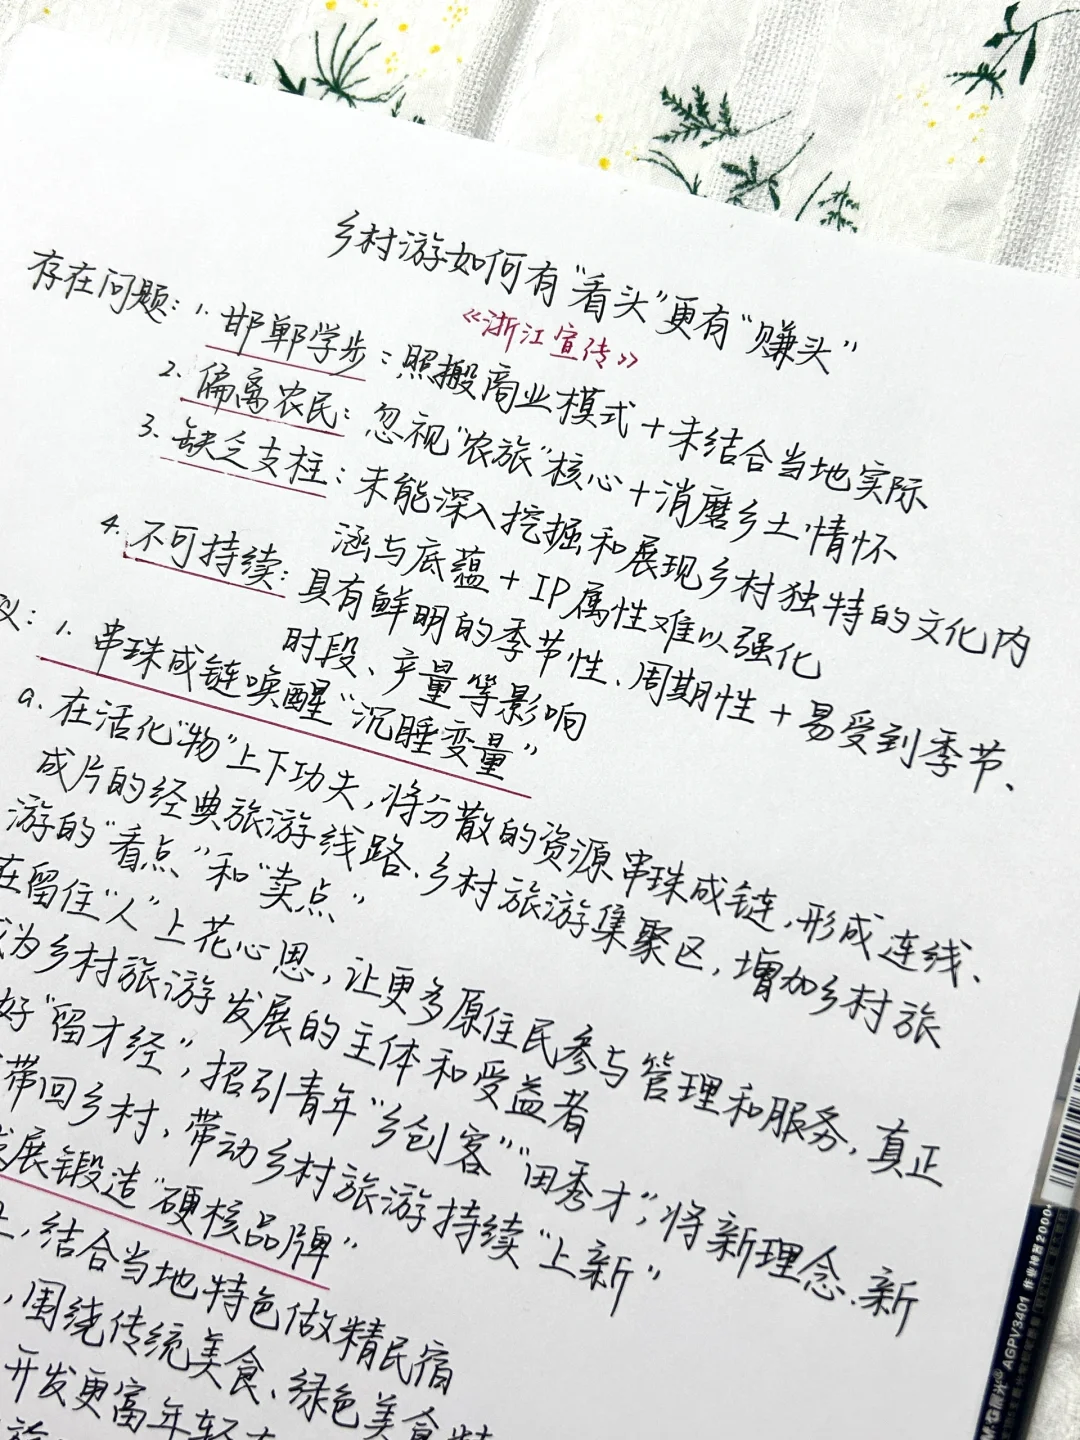 乡村游如何有“看头”更有“赚头”
《浙江宣传》
存在问题：1.邯郸学步：照搬商业模式+未结合当地实际
2.偏离农民：忽视“农旅”核心+消磨乡土情怀
3.缺乏支柱：未能深入挖掘和展现乡村独特的文化内
涵与底蕴+IP属性难以强化
4.不可持续：具有鲜明的季节性、周期性+易受到季节、
时段、产量等影响
议：1.串珠成链唤醒“沉睡变量”
a.在活化“物”上下功夫，将分散的资源串珠成链，形成连线、
成片的经典旅游线路、乡村旅游集聚区，增加乡村旅
游的“看点”和“卖点”
在留住“人”上花心思，让更多原住民参与管理和服务，真正
成为乡村旅游发展的主体和受益者
好“留才经”，招引青年“乡创客”“田秀才”，将新理念、新
带回乡村，带动乡村旅游持续“上新”
发展锻造“硬核品牌”
上，结合当地特色做精民宿
，围绕传统美食、绿色美食
开发更富年轻
M&G晨光 AGPV3401 作业神器2000